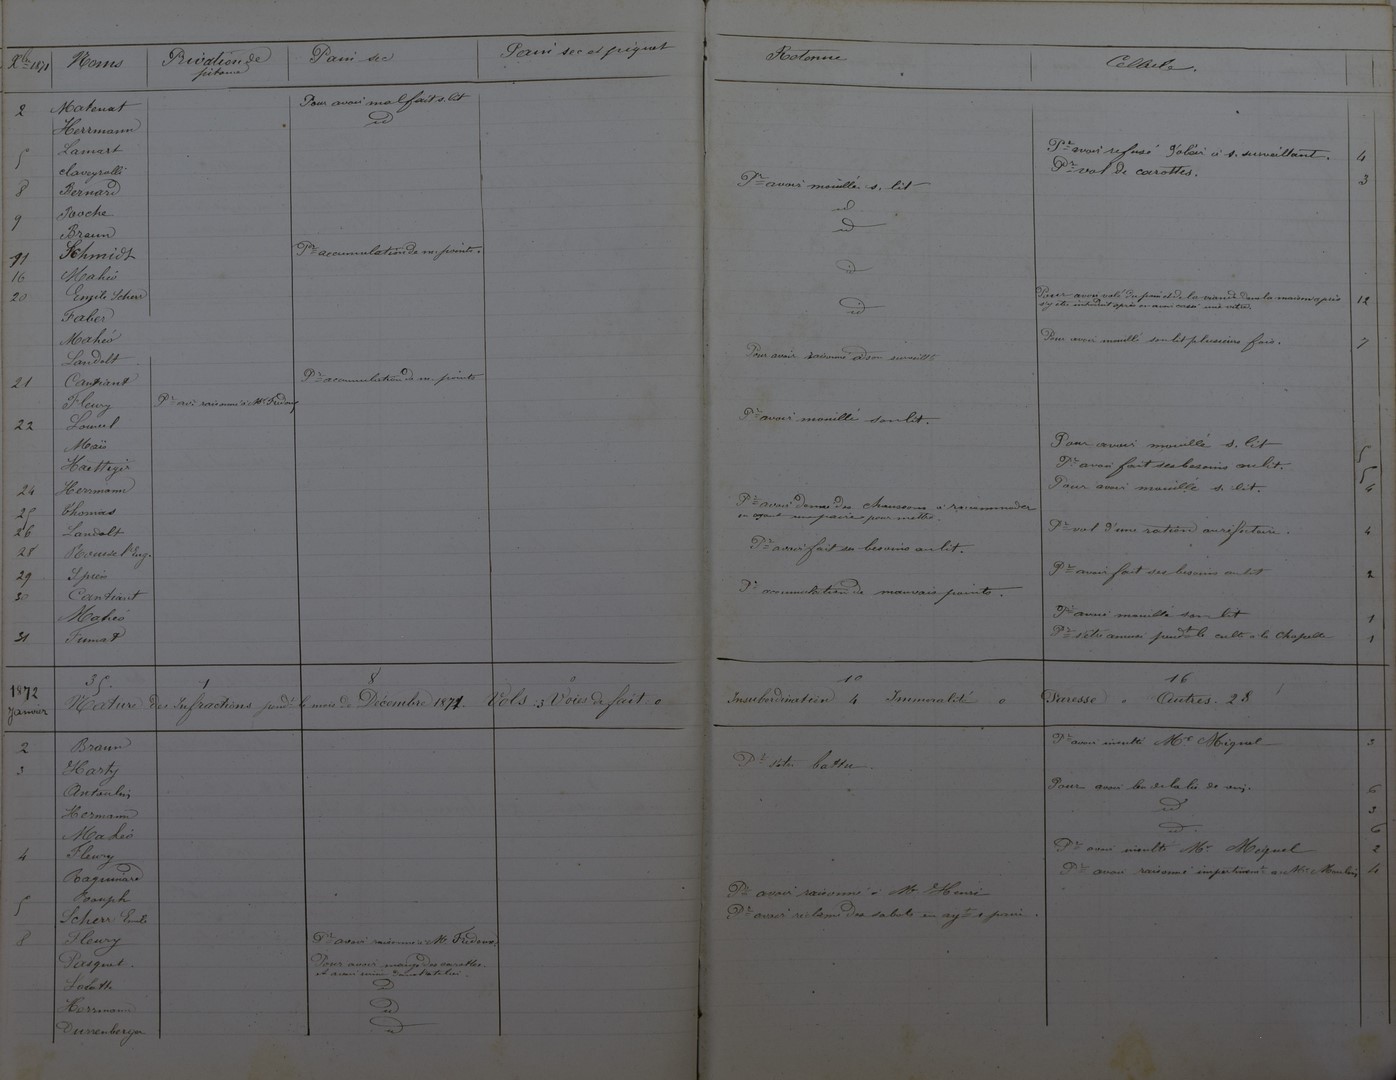 Xbre 1871 Noms Privation de pitance Pain sec Pain sec et piquet Rotonne Cellule.
2 Matenat Pour avoir mal fait s. lit
Herrmann id
Lamart Pr avoir refusé d'obéir à s. surveillant. 4
5 Claveyrolli Pr vol de carottes. 3
8 Bernard Pr avoir mouillé s. lit
Poche id
9 Braun id
11 Schmidt Pr accumulation de m. points.
16 Mahéo id
20 Emile Scherr 12
Faber id
Mahéo Pour avoir mouillé son lit plusieurs fois. 7
Landolt Pour avoir raisonné à son surveillt
21 Cantiant Pr accumulation de m. points
Fleury Pr avr raisonné à Mr
22 Louvel Pr avoir mouillé son lit.
Maïs Pour avoir mouillé s. lit 5
Haettegir Pr avoir fait ses besoins au lit. 5
24 Herrmann Pour avoir mouillé s. lit. 4
25 Thomas Pr avoir des chaussons à raccommoder
en ayant une paire pour mettre.
26 Landolt Pr vol d'une ration au réfectoire. 4
28 Eug. Pr avoir fait ses besoins au lit.
29 Spies Pr avoir fait ses besoins au lit 2
30 Cantiant Pr accumulation de mauvais points.
Mahéo Pr avoir mouillé son lit 1
31 Fumat Pr s'être amusé pendt le culte à la Chapelle 1
35. 1 8 0 10 16
1872 Janvier Nature des Infractions pendt le mois de Décembre 1871. Vols : 3 Voies de fait 0 Insubordination 4 Immoralité 0 Paresse 0 Autres. 28
2 Braun Pr avoir insulté Mr Miquel 3
3 Harty Pr s'être battu.
Antoulin Pour avoir bu de la lie de vin. 6
Hermann id 3
Mahéo id. 6
4 Fleury Pr avoir insulté Mr Miquel 2
Raguinard Pr avoir raisonné impertinemt au Mr 4
5 Joseph Pr avoir raisonné à Mr Henri
Scherr Emile Pr avoir réclamé des sabots en ayt 1 paire.
8 Fleury Pr avoir raisonné à Mr
Pasquet. Pour avoir mangé des carottes
id
Herrmann id
Dussenberger id